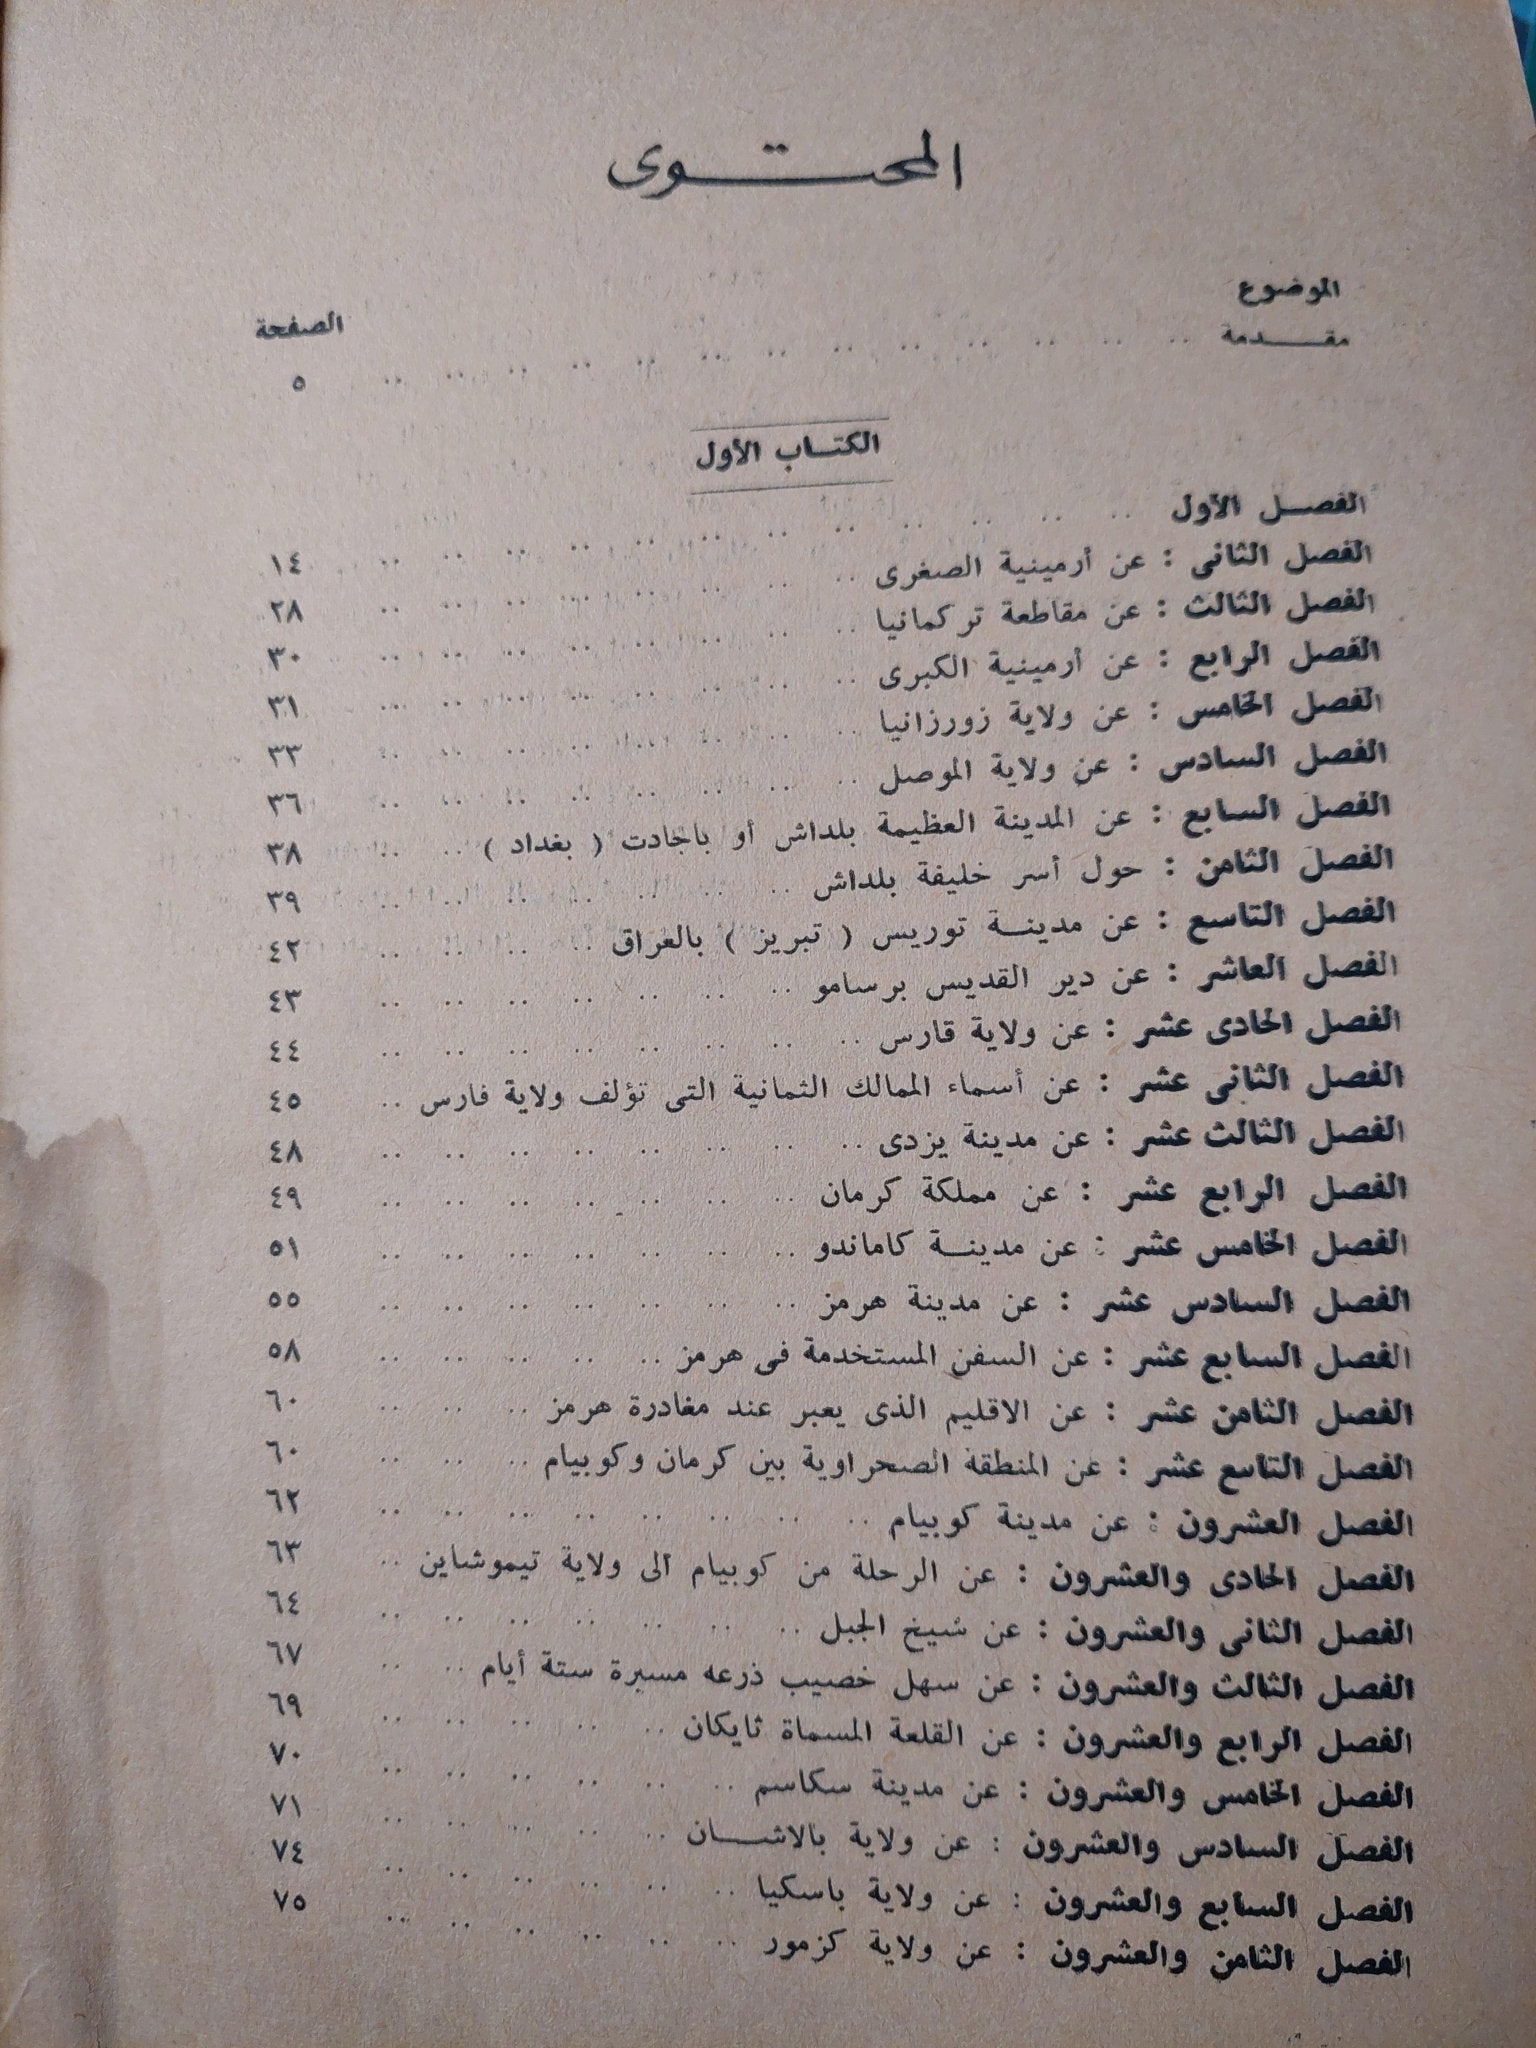 المحتوى
الموضوع الصفحة
مقدمة .. .. .. .. .. .. .. .. .. .. .. .. .. ٥
الكتاب الأول
الفصل الأول .. .. .. .. .. .. .. .. .. .. .. .. ١٤
الفصل الثانى : عن أرمينية الصغرى .. .. .. .. .. .. .. .. ٢٨
الفصل الثالث : عن مقاطعة تركمانيا .. .. .. .. .. .. .. .. ٣٠
الفصل الرابع : عن أرمينية الكبرى .. .. .. .. .. .. .. .. ٣١
الفصل الخامس : عن ولاية زورزانيا .. .. .. .. .. .. .. .. ٣٣
الفصل السادس : عن ولاية الموصل .. .. .. .. .. .. .. .. ٣٦
الفصل السابع : عن المدينة العظيمة بلداش أو باجادت ( بغداد ) .. .. ٣٨
الفصل الثامن : حول أسر خليفة بلداش .. .. .. .. .. .. .. ٣٩
الفصل التاسع : عن مدينة توريس ( تبريز ) بالعراق .. .. .. .. ٤٢
الفصل العاشر : عن دير القديس برسامو .. .. .. .. .. .. .. ٤٣
الفصل الحادى عشر : عن ولاية قارس .. .. .. .. .. .. .. .. ٤٤
الفصل الثانى عشر : عن أسماء الممالك الثمانية التى تؤلف ولاية فارس .. ٤٥
الفصل الثالث عشر : عن مدينة يزدى .. .. .. .. .. .. .. .. ٤٨
الفصل الرابع عشر : عن مملكة كرمان .. .. .. .. .. .. .. ٤٩
الفصل الخامس عشر : عن مدينة كاماندو .. .. .. .. .. .. .. ٥١
الفصل السادس عشر : عن مدينة هرمز .. .. .. .. .. .. .. ٥٥
الفصل السابع عشر : عن السفن المستخدمة فى هرمز .. .. .. .. .. ٥٨
الفصل الثامن عشر : عن الاقليم الذى يعبر عند مغادرة هرمز .. .. .. ٦٠
الفصل التاسع عشر : عن المنطقة الصحراوية بين كرمان وكوبيام .. .. .. ٦٠
الفصل العشرون : عن مدينة كوبيام .. .. .. .. .. .. .. .. ٦٢
الفصل الحادى والعشرون : عن الرحلة من كوبيام الى ولاية تيموشاين .. ٦٣
الفصل الثانى والعشرون : عن شيخ الجبل .. .. .. .. .. .. .. ٦٤
الفصل الثالث والعشرون : عن سهل خصيب ذرعه مسيرة ستة أيام .. .. ٦٧
الفصل الرابع والعشرون : عن القلعة المسماة ثايكان .. .. .. .. .. ٦٩
الفصل الخامس والعشرون : عن مدينة سكاسم .. .. .. .. .. .. ٧٠
الفصل السادس والعشرون : عن ولاية بالاشان .. .. .. .. .. ٧١
الفصل السابع والعشرون : عن ولاية باسكيا .. .. .. .. .. .. ٧٤
الفصل الثامن والعشرون : عن ولاية كزمور .. .. .. .. .. .. ٧٥